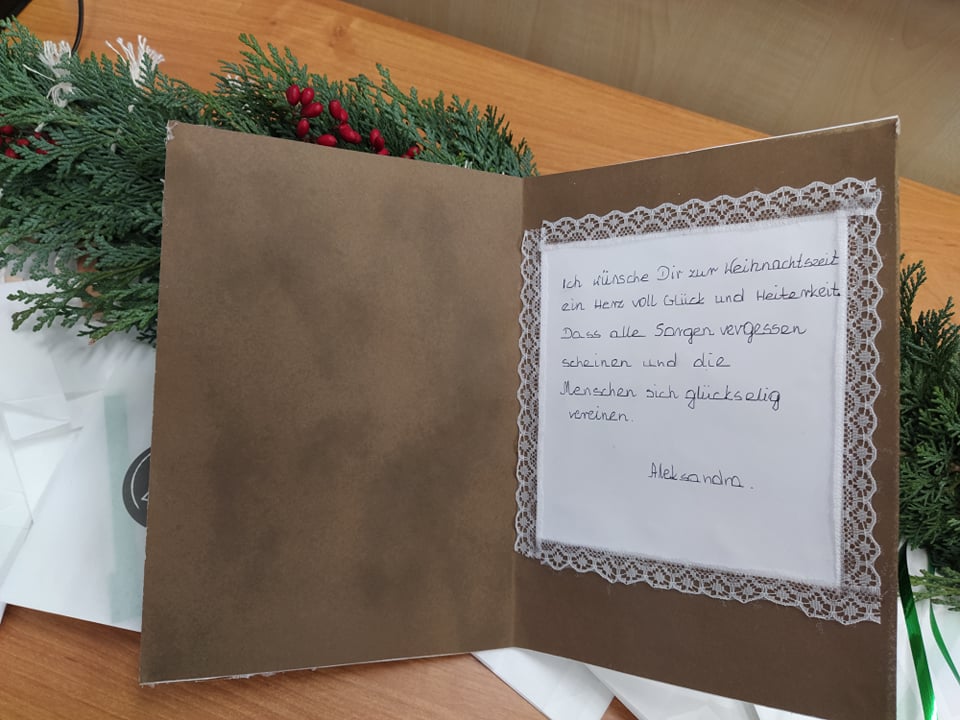 Ich wünsche Dir zur Weihnachtszeit
ein Herz voll Glück und Heiterkeit
Dass alle Sorgen vergessen
scheinen und die
Menschen sich glückselig
vereinen.
Aleksandra.